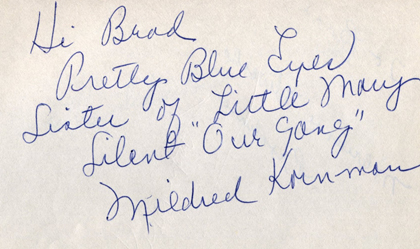 Hi Brad
Pretty Blue Eyes
Sister of Little Mary
Silent "Our Gang"
Mildred Kornman